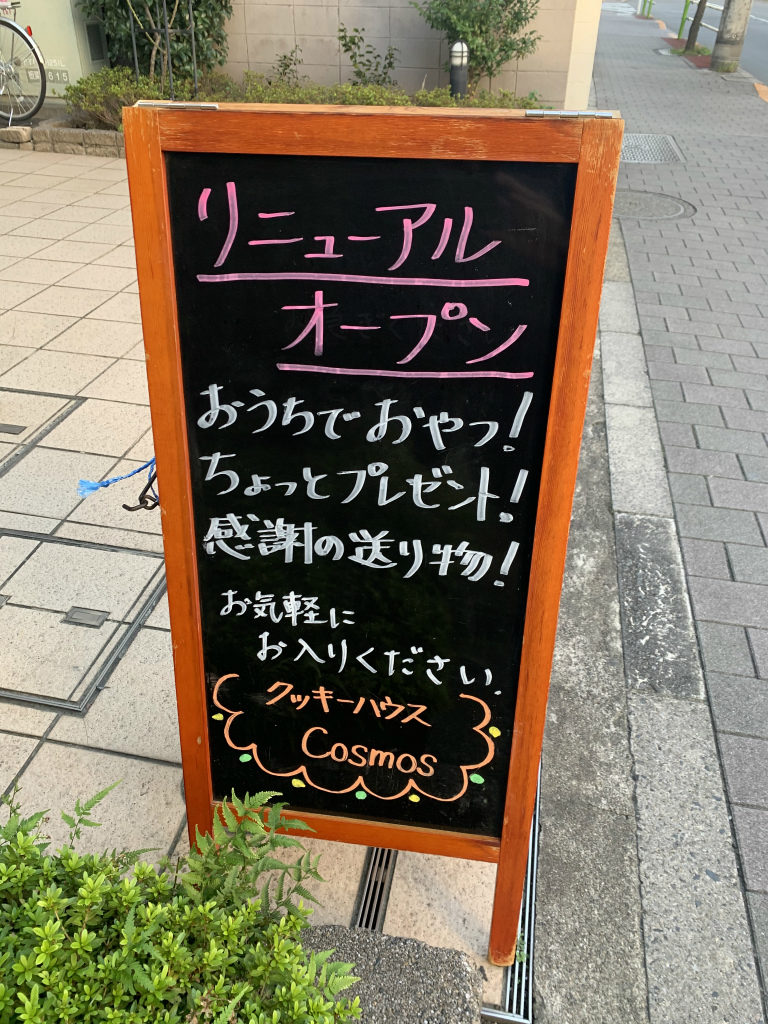 リニューアル
オープン
おうちでおやつ!
ちょっとプレゼント!
感謝の送り物!
お気軽に
お入りください.
クッキーハウス
Cosmos